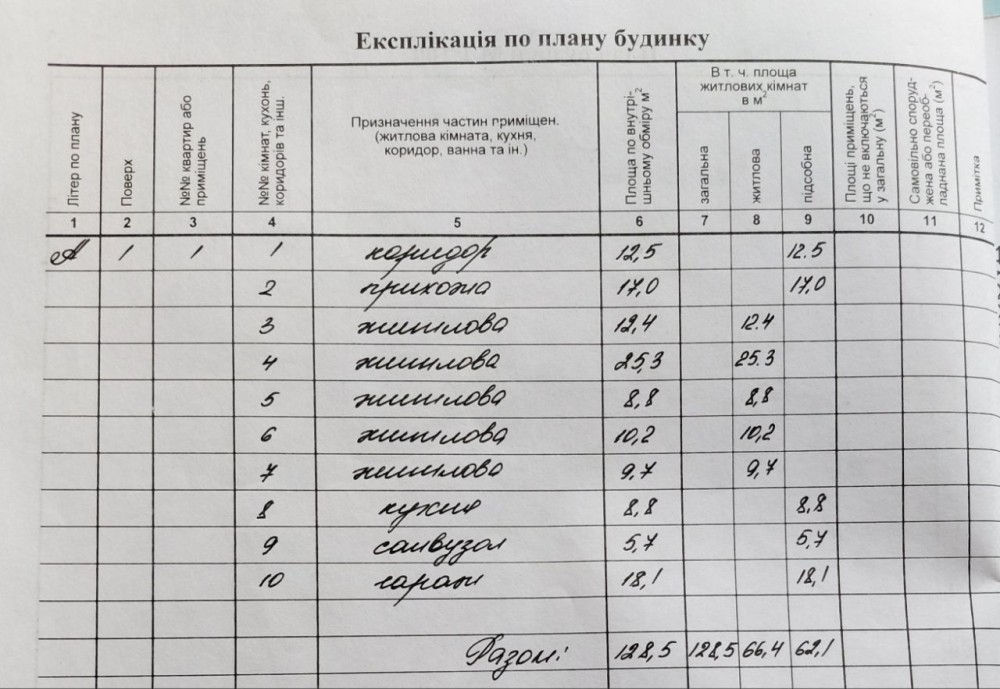 Експлікація по плану будинку
Літер по плану
Поверх
№№ квартир або
приміщень
№№ кімнат, кухонь,
коридорів та інш.
Призначення частин приміщен.
(житлова кімната, кухня,
коридор, ванна та ін.)
Площа по внутрі-
шньому обміру м²
В т. ч. площа
житлових кімнат
в м²
загальна
житлова
підсобна
Площі приміщень,
що не включаються
у загальну (м²)
Самовільно споруд-
жена або переоб-
ладнана площа (м²)
Примітка
1 2 3 4 5 6 7 8 9 10 11 12
А 1 1 1 коридор 12,5 12.5
2 прихожа 17,0 17,0
3 житлова 12,4 12.4
4 житлова 25,3 25.3
5 житлова 8,8 8,8
6 житлова 10,2 10,2
7 житлова 9,7 9,7
8 кухня 8,8 8,8
9 санвузол 5,7 5,7
10 гараж 18,1 18,1
Разом: 128,5 128,5 66,4 62,1